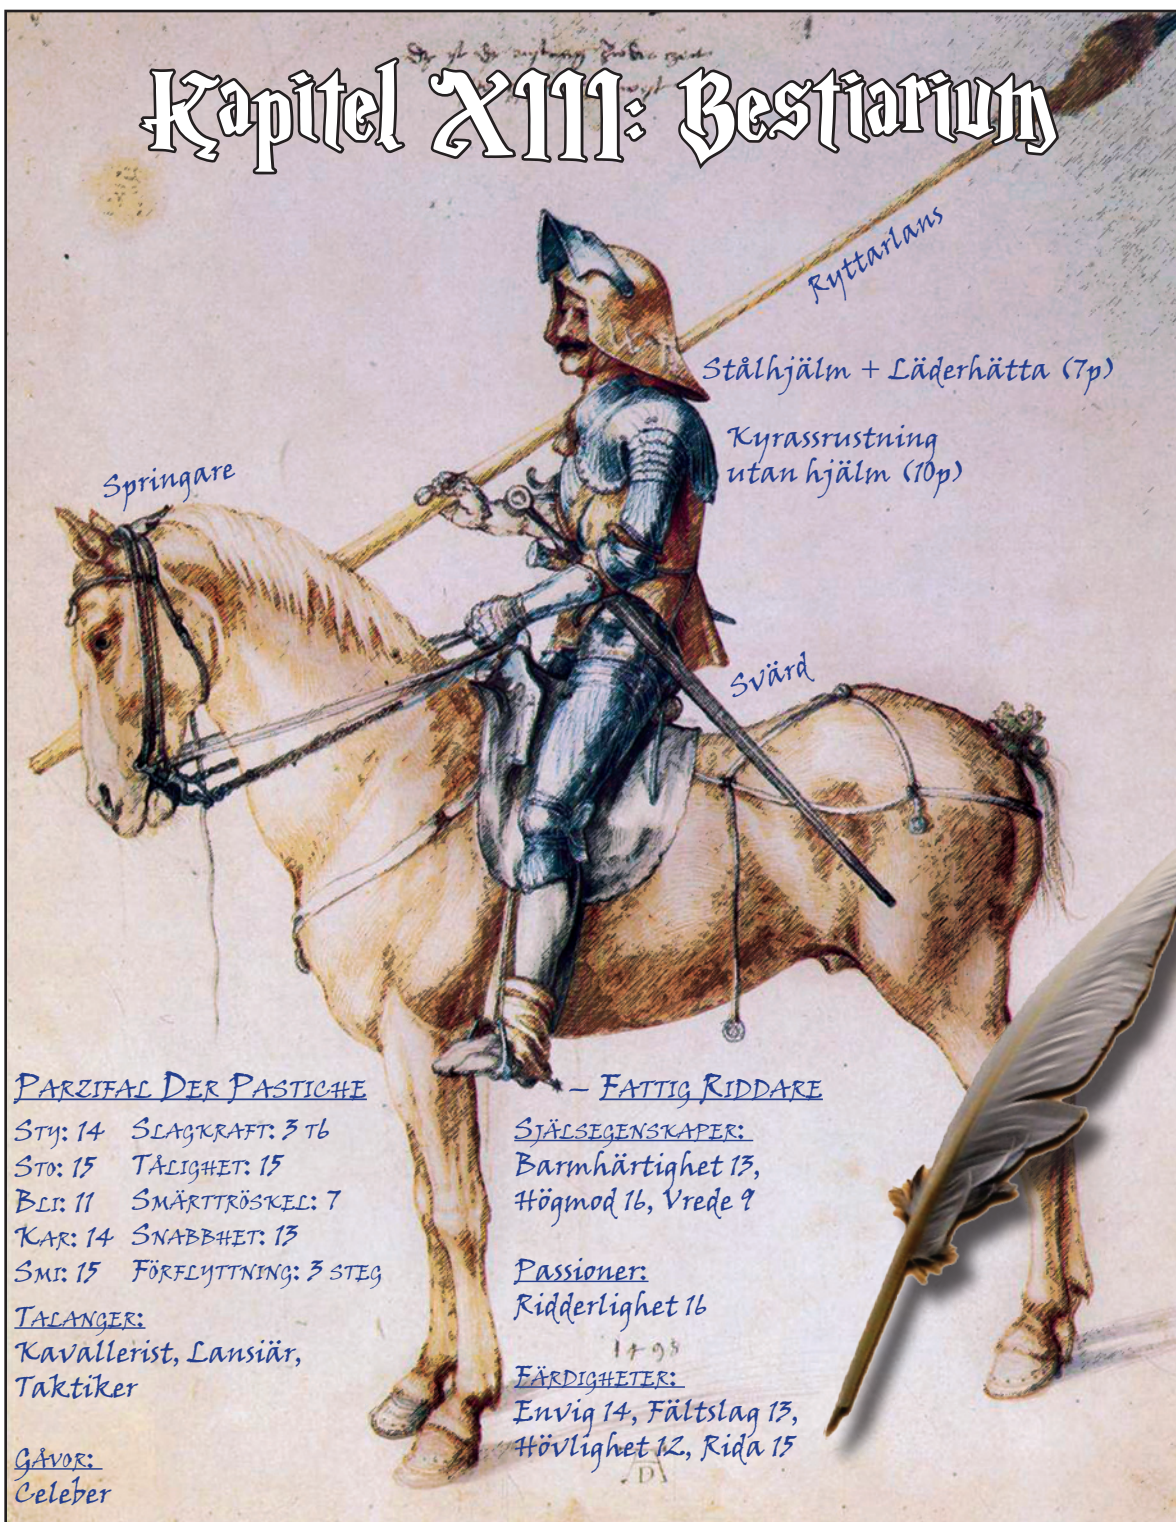 Kapitel XIII: Bestiarium
Ryttarlans
Stålhjälm + Läderhätta (7p)
Kyrassrustning
utan hjälm (10p)
Springare
Svärd
Parzifal Der Pastiche – Fattig Riddare
Sty: 14 Slagkraft: 3 t6
Sto: 15 Tålighet: 15
Bli: 11 Smärttröskel: 7
Kar: 14 Snabbhet: 13
Smi: 15 Förflyttning: 3 steg
Talanger:
Kavallerist, Lansiär,
Taktiker
Gåvor:
Celeber
Själsegenskaper:
Barmhärtighet 13,
Högmod 16, Vrede 9
Passioner:
Ridderlighet 16
1498
Färdigheter:
Envig 14, Fältslag 13,
Hövlighet 12, Rida 15
AD